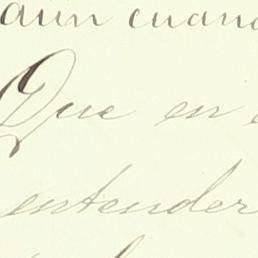 aun cuando
Que en e
entender